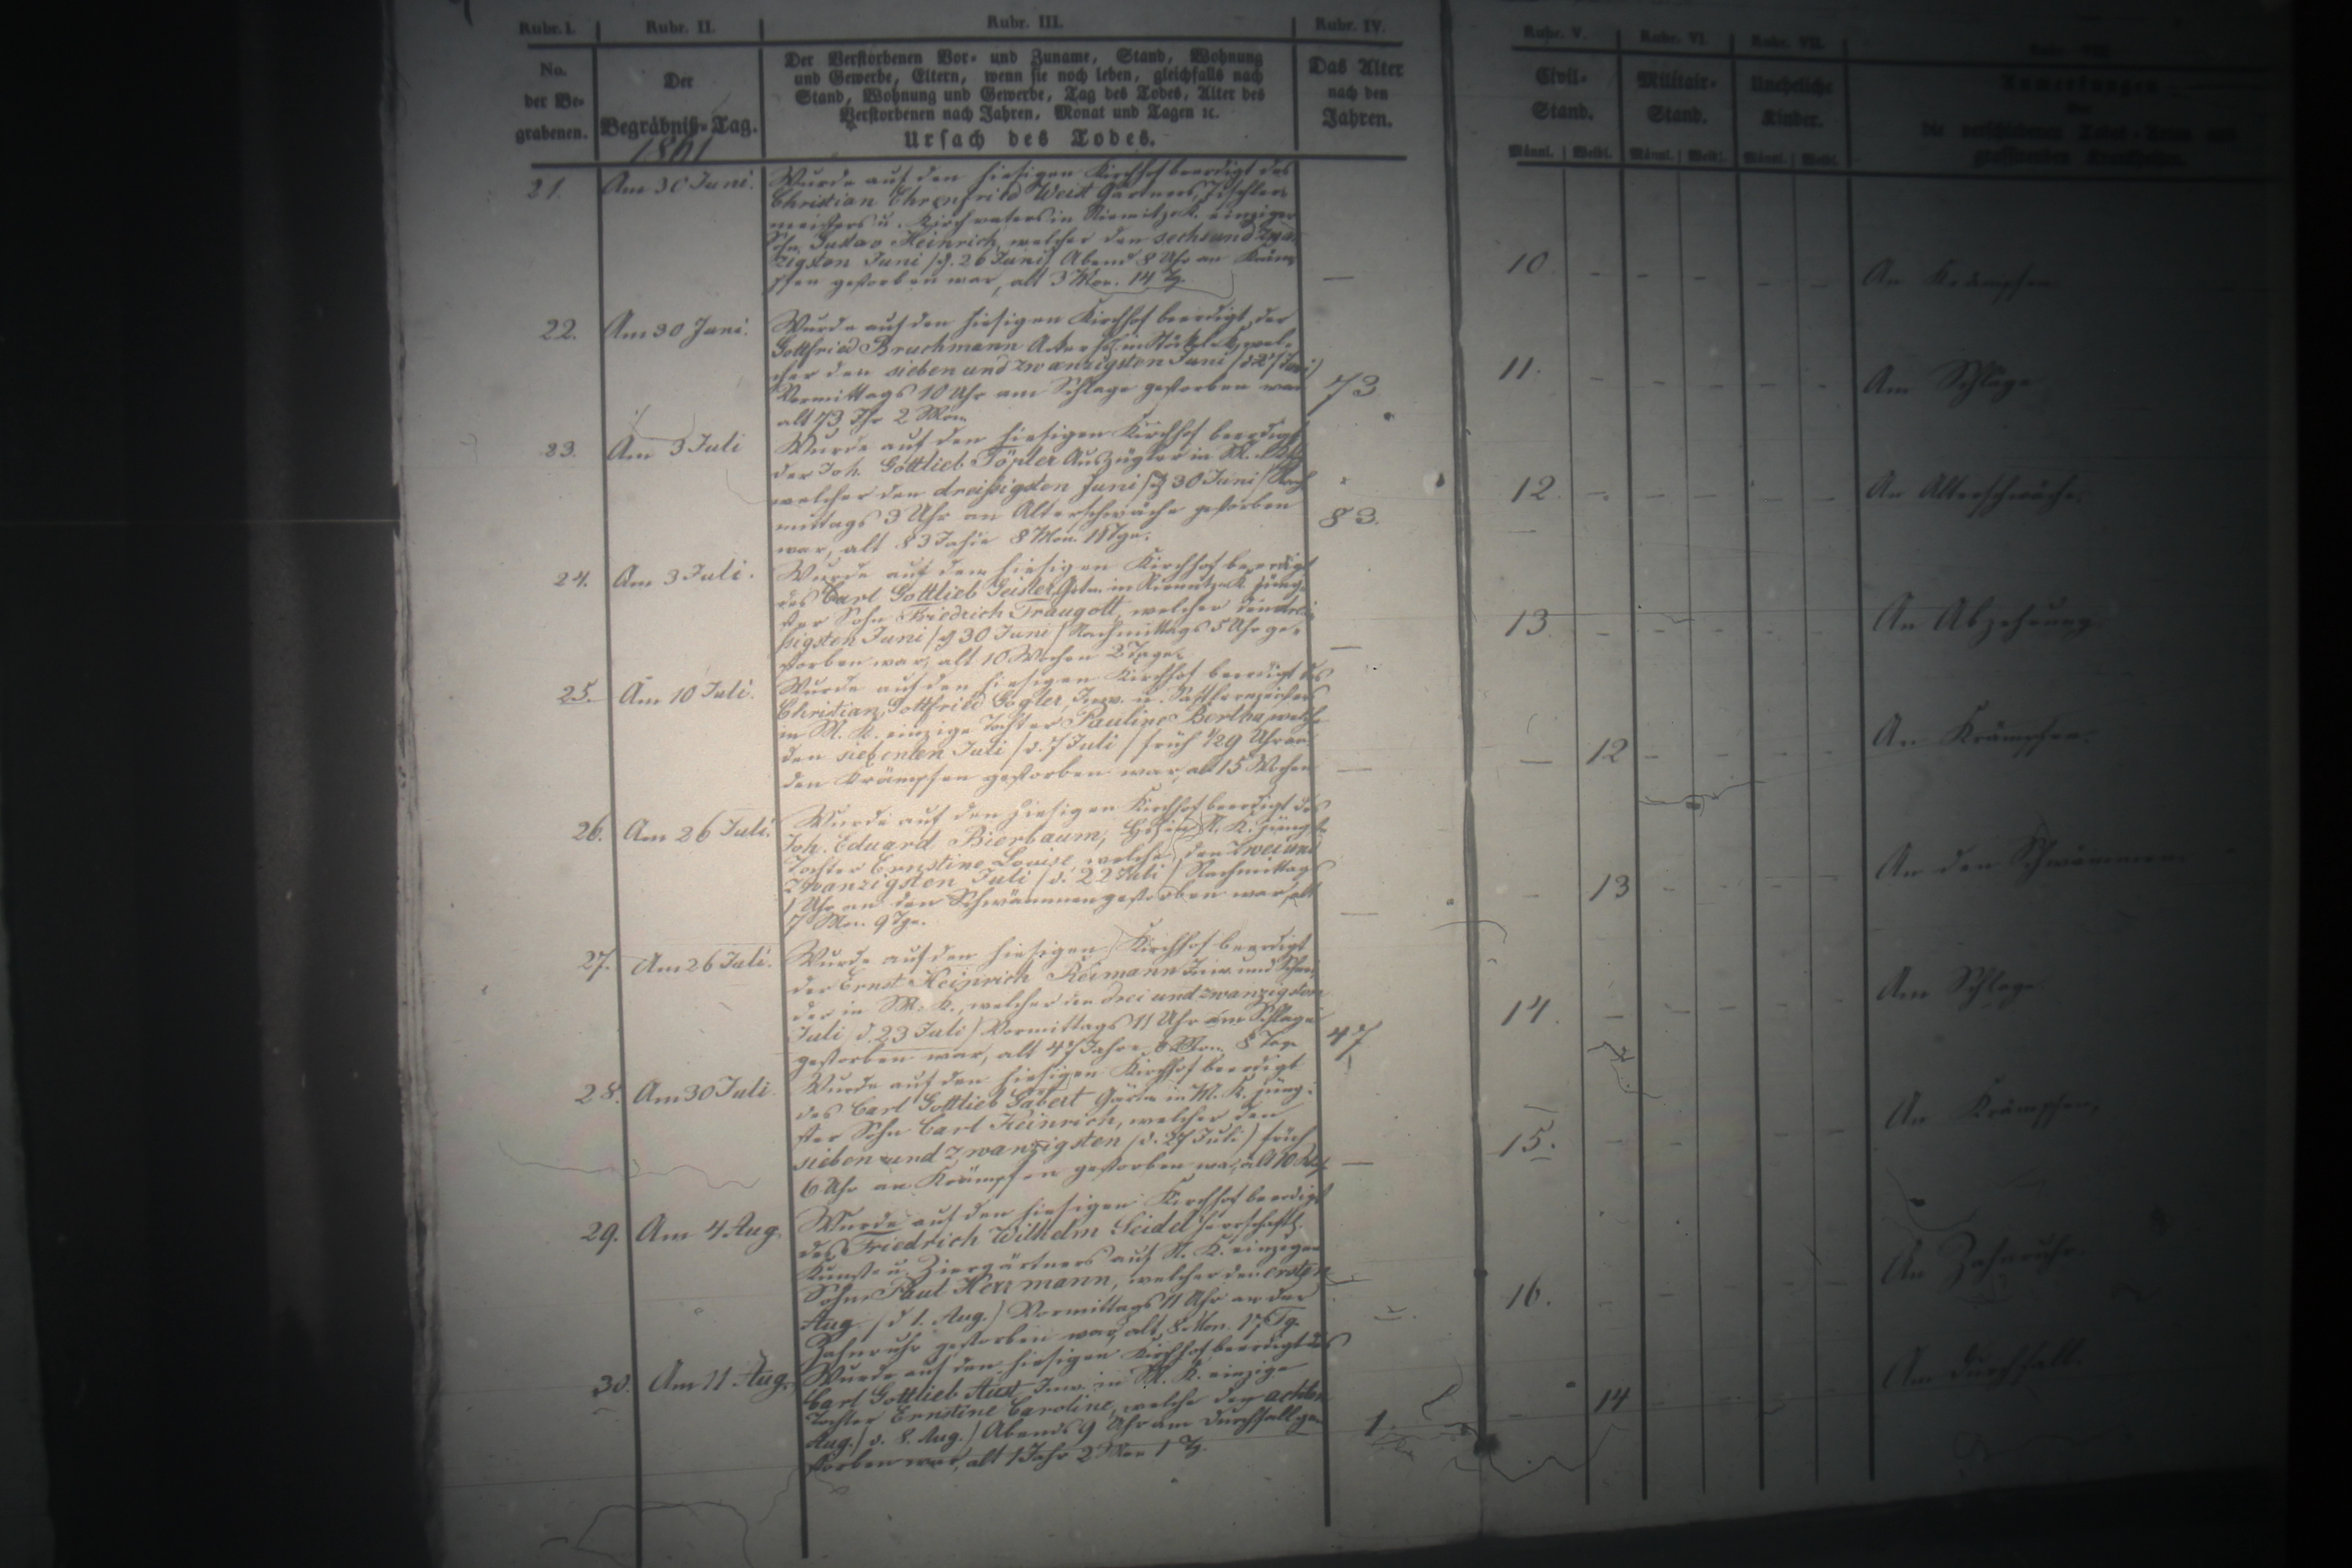 Rubr. I. Rubr. II. Rubr. III. Rubr. IV. Rubr. V. Rubr. VI. Rubr. VII.
No. der Be-grabenen.
Der Begräbniß-Tag.
1861
Der Verstorbenen Vor- und Zuname, Stand, Wohnung
und Gewerbe, Eltern, wenn sie noch leben, gleichfalls nach
Stand, Wohnung und Gewerbe, Tag des Todes, Alter des
Verstorbenen nach Jahren, Monat und Tagen ıc.
Ursach des Todes.
Das Alter nach den Jahren.
Civil-Stand.
Militair-Stand.
Uneheliche Kinder.
Anmerkungen
Männl. Weibl. Männl. Weibl. Männl. Weibl.
21. Am 30 Juni. Wurde auf den hiesigen Kirchhof beerdigt des
Christian Ehrenfried Weist Gärtners, Tischler-
meisters u. Kirchvaters in einziger
Sohn Gustav Heinrich, welcher den sechsund zwan
zigsten Juni /d. 26 Juni/ Abend 8 Uhr an Kräm
pfen gestorben war, alt 3 Mon. 14 Tg. — 10 An Krämpfen
22. Am 30 Juni. Wurde auf den hiesigen Kirchhof beerdigt, der
Gottfried Bruchmann wel-
cher den sieben und zwanzigsten Juni /d 27 Juni/
Vormittags 10 Uhr am Schlage gestorben war
alt 73 Jhr 2 Mon. 73 11. Am Schlage
23. Am 3 Juli Wurde auf den hiesigen Kirchhof beerdigt
der Joh. Gottlieb Töpler Auszügler in
welcher den dreißigsten Juni /d 30 Juni/ Nach
mittags 3 Uhr an Alterschwäche gestorben
war, alt 83 Jahre 8 Mon. 83. 12. An Alterschwäche.
24. Am 3 Juli. Wurde auf dem hiesigen Kirchhof beerdigt
des Carl Gottlieb Geisler jüng-
ster Sohn Friedrich Traugott, welcher den drei
ßigsten Juni /d 30 Juni/ Nachmittags 5 Uhr ge-
storben war, alt 10 Wochen 2 Tage. — 13. An Abzehrung
25. Am 10 Juli. Wurde auf den hiesigen Kirchhof beerdigt des
Christian Gottfried Gogler, Inw. u.
in M. K. einzige Tochter Pauline Bertha, welche
den siebenten Juli /d. 7 Juli/ früh 1/29 Uhr an
den Krämpfen gestorben war, alt 15 Wochen — 12 An Krämpfen.
26. Am 26 Juli. Wurde auf den hiesigen Kirchhof beerdigt des
Joh. Eduard Bierbaum, jüngste
Tochter Ernstine Louise, welche den zwei und
zwanzigsten Juli /d. 22 Juli/ Nachmittags
1 Uhr an den Schwämmen gestorben war, alt
7 Mon. 9 Tge. — 13 An den Schwämmen.
27. Am 26 Juli. Wurde auf den hiesigen Kirchhof beerdigt
der Ernst Heinrich Reimann Inw. und Schnei
der in M. K., welcher den drei und zwanzigsten
Juli /d. 23 Juli/ Vormittags 11 Uhr am Schlage
gestorben war, alt 47 Jahre 8 Tage 47 14. Am Schlage
28. Am 30 Juli. Wurde auf den hiesigen Kirchhof beerdigt
des Carl Gottlieb Gabert Gärtn. in M. K. jüng-
ster Sohn Carl Heinrich, welcher den
sieben und zwanzigsten (d. 27 Juli) früh
6 Uhr an Krämpfen gestorben war, alt 10 — 15. An Krämpfen,
29. Am 4 Aug. Wurde auf den hiesigen Kirchhof beerdigt
des Friedrich Wilhelm Seidel herrschaftl.
Kunst- u. Ziergärtners auf einziger
Sohn Paul Herrmann, welcher den ersten
Aug. /d 1. Aug./ Vormittags 11 Uhr an der
Zahnruhr gestorben war, alt 8 Mon. 17 Tg. 16. An Zahnruhr.
30. Am 11 Aug. Wurde auf den hiesigen Kirchhof beerdigt des
Carl Gottlieb Aust Inw. in M. K. einzige
Tochter Ernstine Caroline, welche den achten
Aug. / d. 8. Aug. / Abends 9 Uhr am Durchfall ge-
storben war, alt 1 Jahr 2 Mon 1 Tg. 1. 14 Am Durchfall.